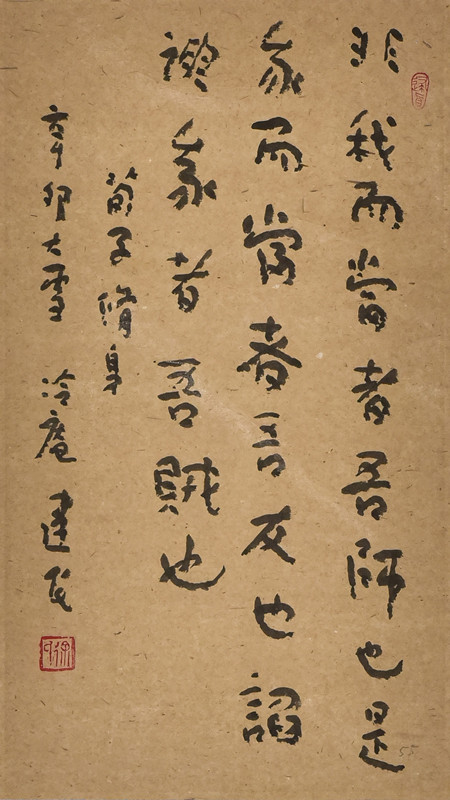 非我而當者吾師也是
我而當者吾友也諂
諛我者吾賊也
荀子脩身
辛卯大雪 冷庵 建
55